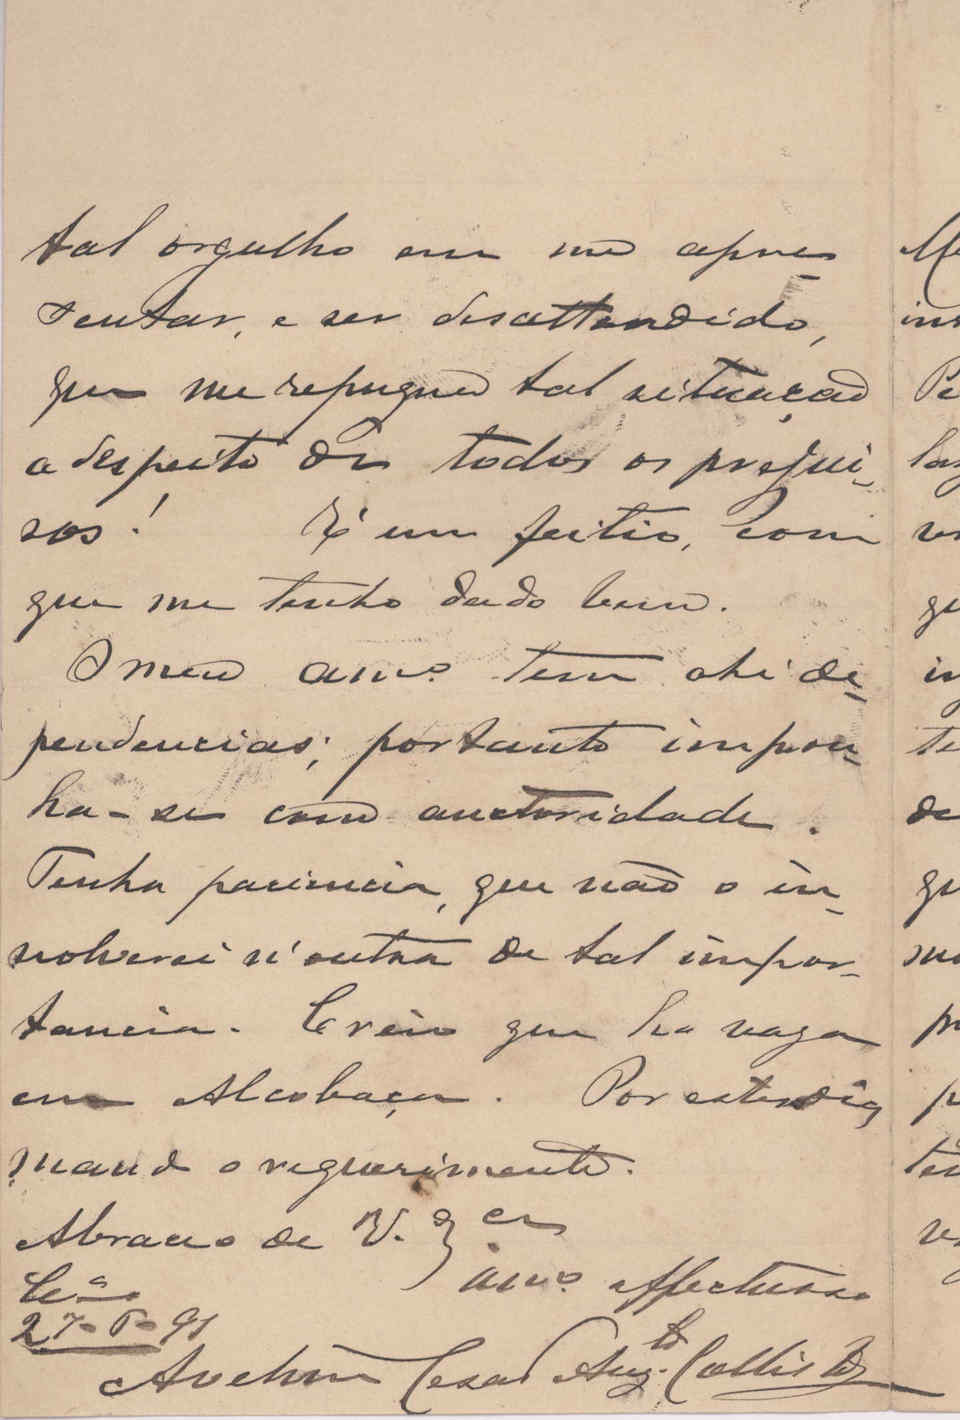 tal orgulho em me apre-
sentar, e ser desattendido,
que me repugna tal situação
a despeito de todos os prejui-
sos! É um feitio, com
que me tenho dado bem.
O meu amº. tem ahi de-
pendencias; portanto impon-
ha-se com auctoridade.
Tenha paciencia, que não o in-
volverei n'outra de tal impor-
tancia. Creio que ha vaga
em Alcobaça. Por estes dias
mando o requerimento.
Abraço de V. Exª
amº affectuoso
Cª
27-6-91
Avelino Cesar Augto Callisto